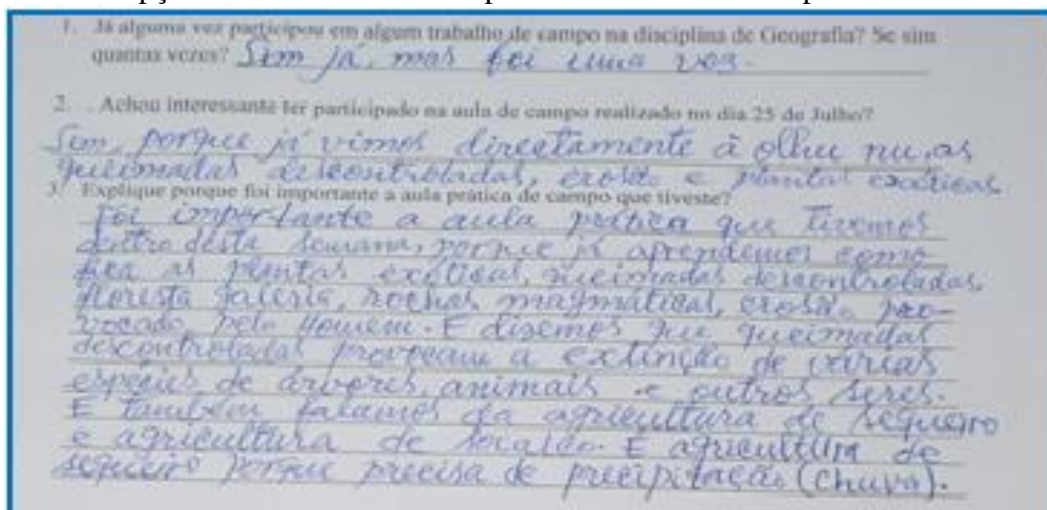 1. Já alguma vez participou em algum trabalho de campo na disciplina de Geografia? Se sim
quantas vezes? Sim já, mas foi uma vez.
2. . Achou interessante ter participado na aula de campo realizado no dia 25 de Julho?
Sim, porque já vimos directamente à olhu nu, as
queimadas descontroladas, erosão e plantas exóticas
3. Explique porque foi importante a aula prática de campo que tiveste?
Foi importante a aula prática que tivemos
dentro desta semana, porque já aprendemos como
fica as plantas exóticas, queimadas descontroladas,
floresta galeria, rochas magmáticas, erosão pro-
vocado pelo Homem. E disemos que queimadas
descontroladas provocam a extinção de várias
espécies de árvores, animais e outros seres.
E também falamos da agricultura de sequeiro
e agricultura de E agricultura de
sequeiro porque precisa de precipitação (chuva).